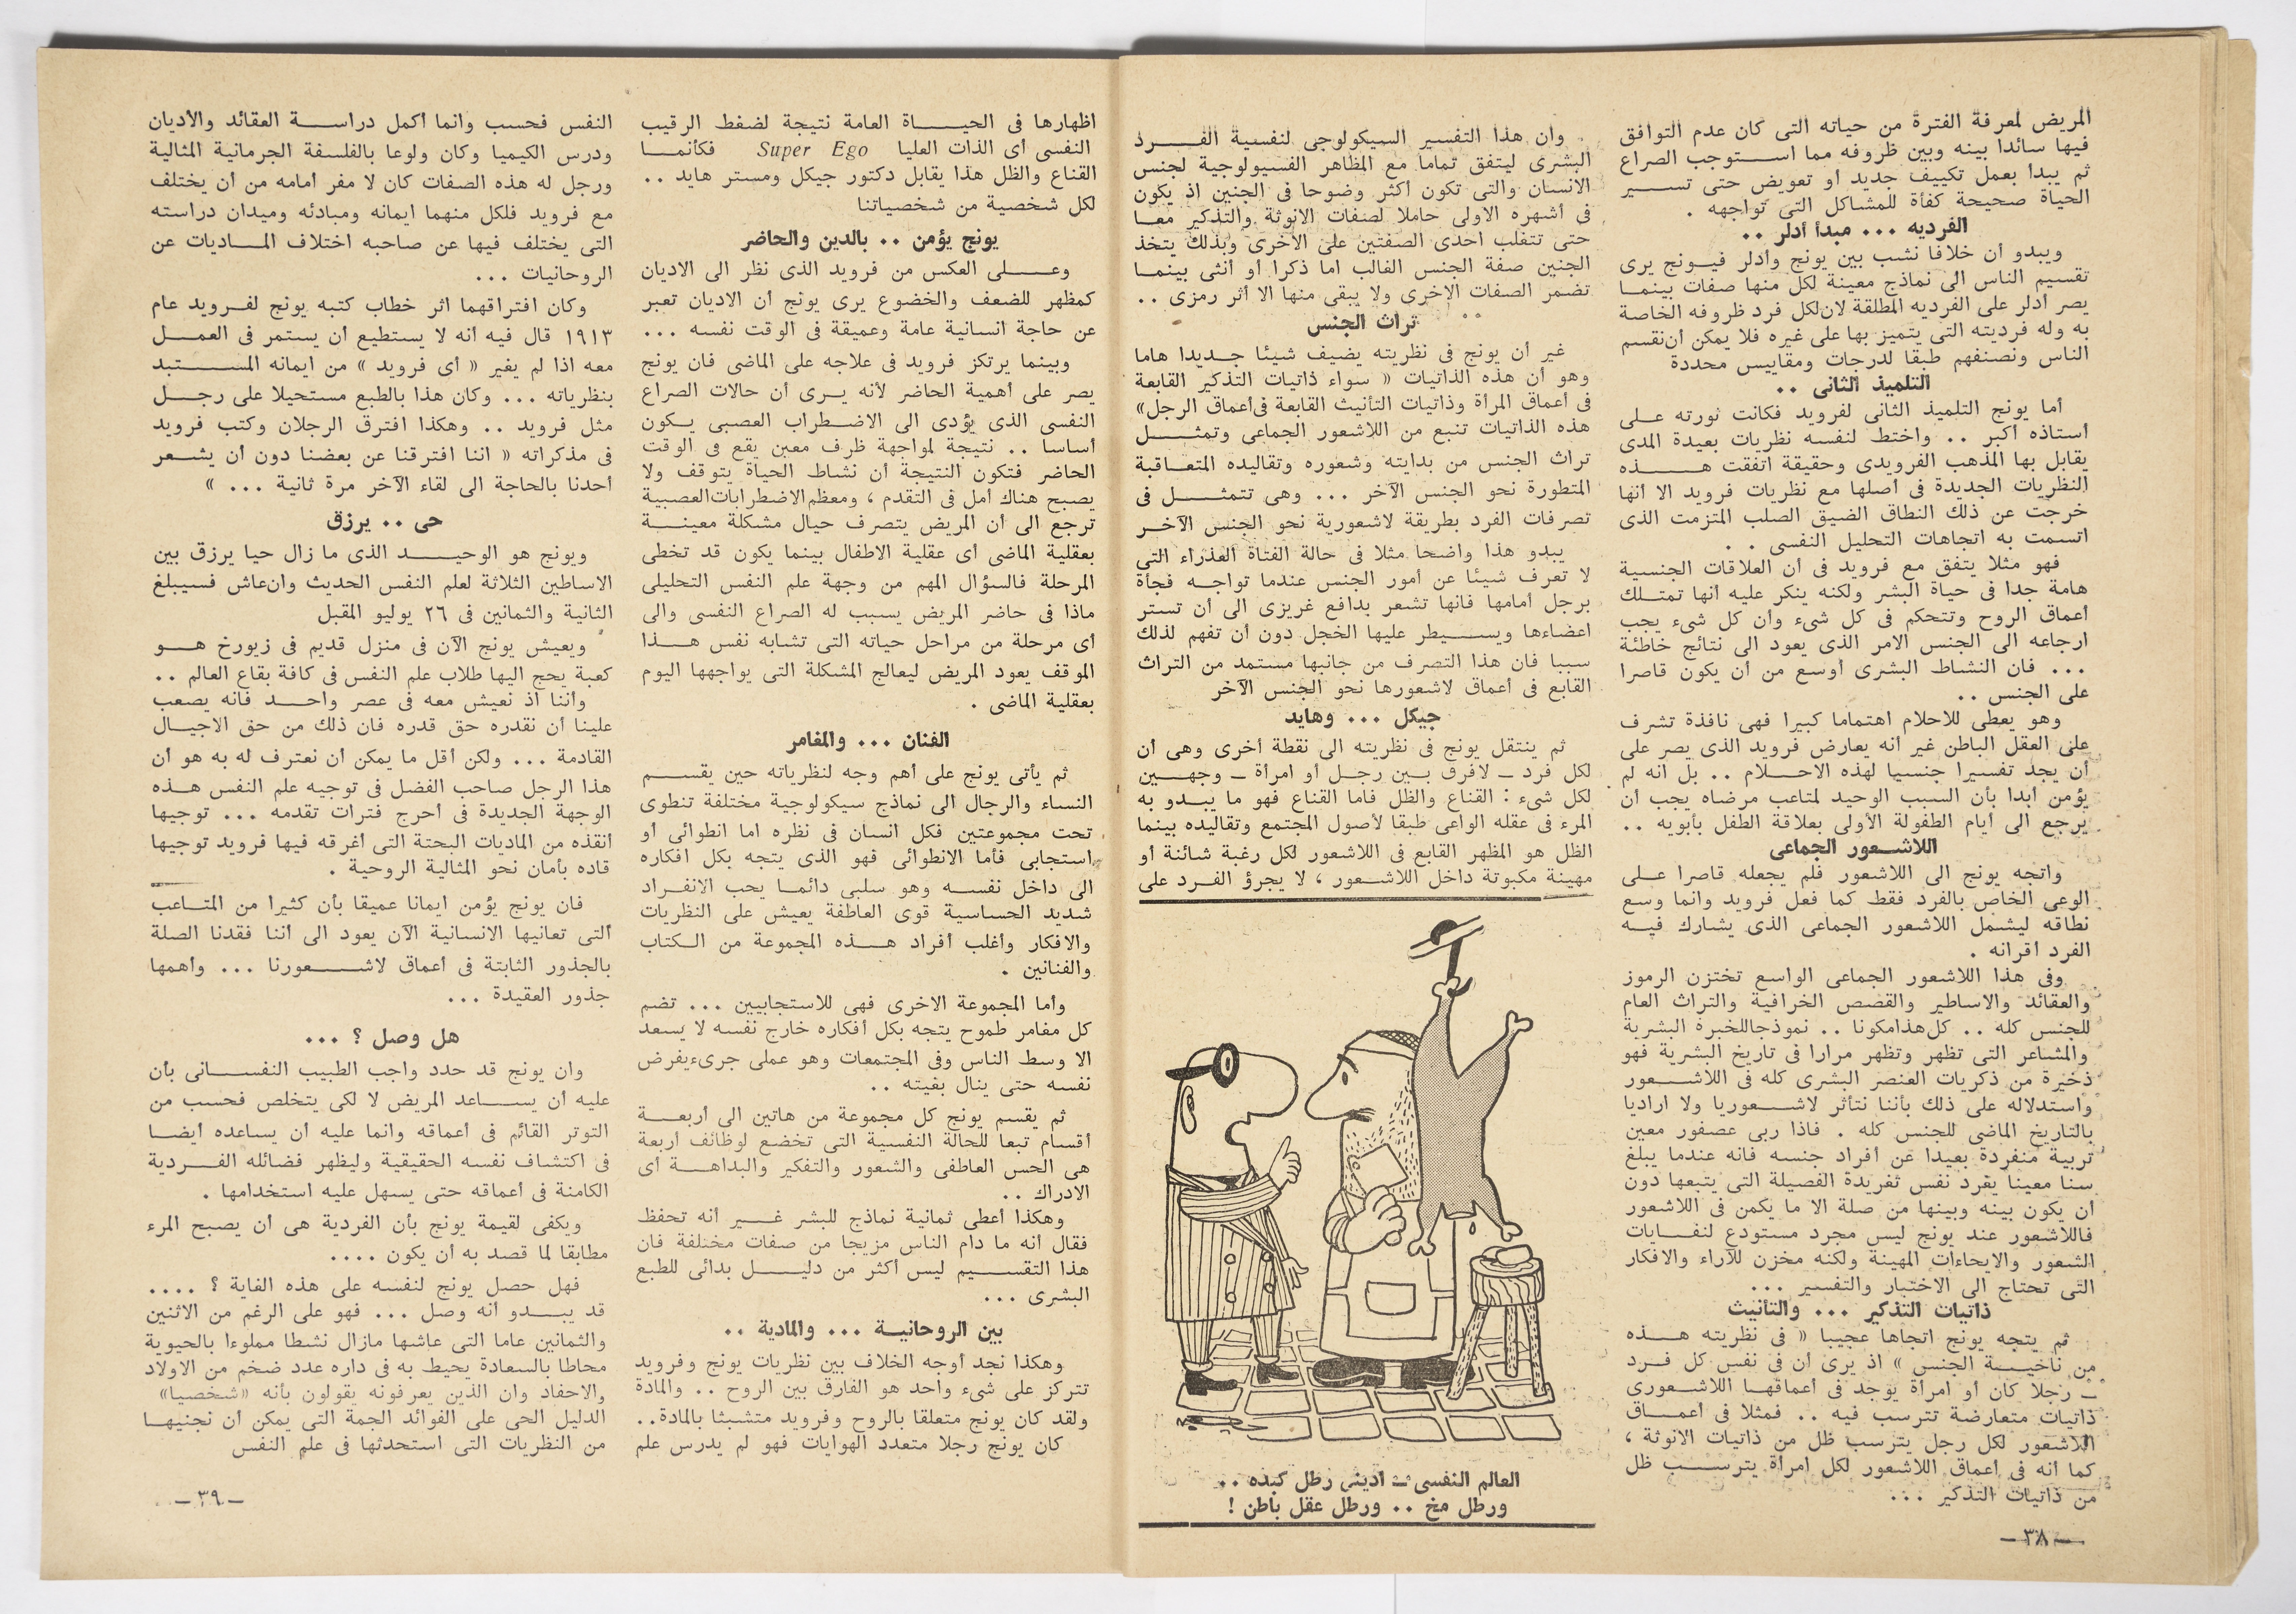 المريض لمعرفة الفترة من حياته التى كان عدم التوافق
فيها سائدا بينه وبين ظروفه مما استوجب الصراع
ثم يبدأ بعمل تكييف جديد أو تعويض حتى تسير
الحياة صحيحة كفأة للمشاكل التى تواجهه .
الفرديه ... مبدأ أدلر ..
ويبدو أن خلافا نشب بين يونج وأدلر فيونج يرى
تقسيم الناس الى نماذج معينة لكل منها صفات بينما
يصر أدلر على الفرديه المطلقة لان لكل فرد ظروفه الخاصة
به وله فرديته التى يتميز بها على غيره فلا يمكن أن نقسم
الناس ونصنفهم طبقا لدرجات ومقاييس محددة
التلميذ الثانى ..
أما يونج التلميذ الثانى لفرويد فكانت ثورته على
أستاذه أكبر .. واختط لنفسه نظريات بعيدة المدى
يقابل بها المذهب الفرويدى وحقيقة اتفقت هذه
النظريات الجديدة فى أصلها مع نظريات فرويد الا أنها
خرجت عن ذلك النطاق الضيق الصلب المتزمت الذى
اتسمت به اتجاهات التحليل النفسى . .
فهو مثلا يتفق مع فرويد فى أن العلاقات الجنسية
هامة جدا فى حياة البشر ولكنه ينكر عليه أنها تمتلك
أعماق الروح وتتحكم فى كل شىء وأن كل شىء يجب
ارجاعه الى الجنس الامر الذى يعود الى نتائج خاطئة
... فان النشاط البشرى أوسع من أن يكون قاصرا
على الجنس ..
وهو يعطى للاحلام اهتماما كبيرا فهى نافذة تشرف
على العقل الباطن غير أنه يعارض فرويد الذى يصر على
أن يجد تفسيرا جنسيا لهذه الاحلام .. بل أنه لم
يؤمن أبدا بأن السبب الوحيد لمتاعب مرضاه يجب أن
يرجع الى أيام الطفولة الأولى بعلاقة الطفل بأبويه ..
اللاشعور الجماعى
واتجه يونج الى اللاشعور فلم يجعله قاصرا على
الوعى الخاص بالفرد فقط كما فعل فرويد وانما وسع
نطاقه ليشمل اللاشعور الجماعى الذى يشارك فيه
الفرد أقرانه .
وفى هذا اللاشعور الجماعى الواسع تختزن الرموز
والعقائد والاساطير والقصص الخرافية والتراث العام
للجنس كله .. كل هذا مكونا .. نموذجا للخبرة البشرية
والمشاعر التى تظهر وتظهر مرارا فى تاريخ البشرية فهو
ذخيرة من ذكريات العنصر البشرى كله فى اللاشعور
واستدلاله على ذلك بأننا نتأثر لاشعوريا ولا اراديا
بالتاريخ الماضى للجنس كله . فاذا ربى عصفور معين
تربية منفردة بعيدا عن أفراد جنسه فانه عندما يبلغ
سنا معينا يغرد نفس تغريدة الفصيلة التى يتبعها دون
أن يكون بينه وبينها من صلة الا ما يكمن فى اللاشعور
فاللاشعور عند يونج ليس مجرد مستودع لنفايات
الشعور والايحاءات المهينة ولكنه مخزن للآراء والافكار
التى تحتاج الى الاختبار والتفسير ...
ذاتيات التذكير ... والتأنيث
ثم يتجه يونج اتجاها عجيبا « فى نظريته هذه
من ناحية الجنس » اذ يرى أن فى نفس كل فرد
ــ رجلا كان أو امرأة يوجد فى أعماقها اللاشعورى
ذاتيات متعارضة تترسب فيه .. فمثلا فى أعماق
اللاشعور لكل رجل يترسب ظل من ذاتيات الانوثة ،
كما أنه فى أعماق اللاشعور لكل امرأة يترسب ظل
من ذاتيات التذكير ...
ــ ٣٨ ــ
وان هذا التفسير السيكولوجى لنفسية الفرد
البشرى ليتفق تماما مع المظاهر الفسيولوجية لجنس
الانسان والتى تكون أكثر وضوحا فى الجنين اذ يكون
فى أشهره الاولى حاملا لصفات الانوثة والتذكير معا
حتى تتغلب احدى الصفتين على الاخرى وبذلك يتخذ
الجنين صفة الجنس الغالب اما ذكرا أو أنثى بينما
تضمر الصفات الاخرى ولا يبقى منها الا أثر رمزى ..
تراث الجنس
غير أن يونج فى نظريته يضيف شيئا جديدا هاما
وهو أن هذه الذاتيات « سواء ذاتيات التذكير القابعة
فى أعماق المرأة وذاتيات التأنيث القابعة فى أعماق الرجل»
هذه الذاتيات تنبع من اللاشعور الجماعى وتمثل
تراث الجنس من بدايته وشعوره وتقاليده المتعاقبة
المتطورة نحو الجنس الآخر ... وهى تتمثل فى
تصرفات الفرد بطريقة لاشعورية نحو الجنس الآخر
يبدو هذا واضحا مثلا فى حالة الفتاة العذراء التى
لا تعرف شيئا عن أمور الجنس عندما تواجه فجأة
برجل أمامها فانها تشعر بدافع غريزى الى أن تستر
اعضاءها ويسيطر عليها الخجل دون أن تفهم لذلك
سببا فان هذا التصرف من جانبها مستمد من التراث
القابع فى أعماق لاشعورها نحو الجنس الآخر
جيكل ... وهايد
ثم ينتقل يونج فى نظريته الى نقطة أخرى وهى أن
لكل فرد ــ لافرق بين رجل أو امرأة ــ وجهين
لكل شىء : القناع والظل فأما القناع فهو ما يبدو به
المرء فى عقله الواعى طبقا لأصول المجتمع وتقاليده بينما
الظل هو المظهر القابع فى اللاشعور لكل رغبة شائنة أو
مهينة مكبوتة داخل اللاشعور ، لا يجرؤ الفرد على
العالم النفسى ــ أدينى رطل كبده ..
ورطل مخ .. ورطل عقل باطن !
اظهارها فى الحياة العامة نتيجة لضغط الرقيب
النفسى أى الذات العليا Super Ego فكأنما
القناع والظل هذا يقابل دكتور جيكل ومستر هايد ..
لكل شخصية من شخصياتنا
يونج يؤمن .. بالدين والحاضر
وعلى العكس من فرويد الذى نظر الى الاديان
كمظهر للضعف والخضوع يرى يونج أن الاديان تعبر
عن حاجة انسانية عامة وعميقة فى الوقت نفسه ...
وبينما يرتكز فرويد فى علاجه على الماضى فان يونج
يصر على أهمية الحاضر لأنه يرى أن حالات الصراع
النفسى الذى يؤدى الى الاضطراب العصبى يكون
أساسا .. نتيجة لمواجهة ظرف معين يقع فى الوقت
الحاضر فتكون النتيجة أن نشاط الحياة يتوقف ولا
يصبح هناك أمل فى التقدم ، ومعظم الاضطرابات العصبية
ترجع الى أن المريض يتصرف حيال مشكلة معينة
بعقلية الماضى أى عقلية الاطفال بينما يكون قد تخطى
المرحلة فالسؤال المهم من وجهة علم النفس التحليلى
ماذا فى حاضر المريض يسبب له الصراع النفسى والى
أى مرحلة من مراحل حياته التى تشابه نفس هذا
الموقف يعود المريض ليعالج المشكلة التى يواجهها اليوم
بعقلية الماضى .
الفنان ... والمغامر
ثم يأتى يونج على أهم وجه لنظرياته حين يقسم
النساء والرجال الى نماذج سيكولوجية مختلفة تنطوى
تحت مجموعتين فكل انسان فى نظره اما انطوائى أو
استجابى فأما الانطوائى فهو الذى يتجه بكل أفكاره
الى داخل نفسه وهو سلبى دائما يحب الانفراد
شديد الحساسية قوى العاطفة يعيش على النظريات
والافكار وأغلب أفراد هذه المجموعة من الكتاب
والفنانين .
وأما المجموعة الاخرى فهى للاستجابيين ... تضم
كل مغامر طموح يتجه بكل أفكاره خارج نفسه لا يسعد
الا وسط الناس وفى المجتمعات وهو عملى جرىء يفرض
نفسه حتى ينال بغيته ..
ثم يقسم يونج كل مجموعة من هاتين الى أربعة
أقسام تبعا للحالة النفسية التى تخضع لوظائف أربعة
هى الحس العاطفى والشعور والتفكير والبداهة أى
الادراك ..
وهكذا أعطى ثمانية نماذج للبشر غير أنه تحفظ
فقال أنه ما دام الناس مزيجا من صفات مختلفة فان
هذا التقسيم ليس أكثر من دليل بدائى للطبع
البشرى ...
بين الروحانية ... والمادية ..
وهكذا نجد أوجه الخلاف بين نظريات يونج وفرويد
تتركز على شىء واحد هو الفارق بين الروح .. والمادة
ولقد كان يونج متعلقا بالروح وفرويد متشبثا بالمادة..
كان يونج رجلا متعدد الهوايات فهو لم يدرس علم
النفس فحسب وانما أكمل دراسة العقائد والأديان
ودرس الكيميا وكان ولوعا بالفلسفة الجرمانية المثالية
ورجل له هذه الصفات كان لا مفر أمامه من أن يختلف
مع فرويد فلكل منهما ايمانه ومبادئه وميدان دراسته
التى يختلف فيها عن صاحبه اختلاف الماديات عن
الروحانيات ...
وكان افتراقهما اثر خطاب كتبه يونج لفرويد عام
١٩١٣ قال فيه أنه لا يستطيع أن يستمر فى العمل
معه اذا لم يغير « أى فرويد » من ايمانه المستبد
بنظرياته ... وكان هذا بالطبع مستحيلا على رجل
مثل فرويد .. وهكذا افترق الرجلان وكتب فرويد
فى مذكراته « اننا افترقنا عن بعضنا دون أن يشعر
أحدنا بالحاجة الى لقاء الآخر مرة ثانية ... »
حى .. يرزق
ويونج هو الوحيد الذى ما زال حيا يرزق بين
الاساطين الثلاثة لعلم النفس الحديث وان عاش فسيبلغ
الثانية والثمانين فى ٢٦ يوليو المقبل
ويعيش يونج الآن فى منزل قديم فى زيورخ هو
كعبة يحج اليها طلاب علم النفس فى كافة بقاع العالم ..
وأننا اذ نعيش معه فى عصر واحد فانه يصعب
علينا أن نقدره حق قدره فان ذلك من حق الاجيال
القادمة ... ولكن أقل ما يمكن أن نعترف له به هو أن
هذا الرجل صاحب الفضل فى توجيه علم النفس هذه
الوجهة الجديدة فى أحرج فترات تقدمه ... توجيها
أنقذه من الماديات البحتة التى أغرقه فيها فرويد توجيها
قاده بأمان نحو المثالية الروحية .
فان يونج يؤمن ايمانا عميقا بأن كثيرا من المتاعب
ألتى تعانيها الانسانية الآن يعود الى أننا فقدنا الصلة
بالجذور الثابتة فى أعماق لاشعورنا ... وأهمها
جذور العقيدة ...
هل وصل ؟ ...
وان يونج قد حدد واجب الطبيب النفسانى بأن
عليه أن يساعد المريض لا لكى يتخلص فحسب من
التوتر القائم فى أعماقه وانما عليه أن يساعده أيضا
فى اكتشاف نفسه الحقيقية وليظهر فضائله الفردية
الكامنة فى أعماقه حتى يسهل عليه استخدامها .
ويكفى لقيمة يونج بأن الفردية هى أن يصبح المرء
مطابقا لما قصد به أن يكون ....
فهل حصل يونج لنفسه على هذه الغاية ؟ ....
قد يبدو أنه وصل ... فهو على الرغم من الاثنين
والثمانين عاما التى عاشها مازال نشطا مملوءا بالحيوية
محاطا بالسعادة يحيط به فى داره عدد ضخم من الاولاد
والاحفاد وان الذين يعرفونه يقولون بأنه «شخصيا»
الدليل الحى على الفوائد الجمة التى يمكن أن نجنيها
من النظريات التى استحدثها فى علم النفس
ــ ٣٩ ــ